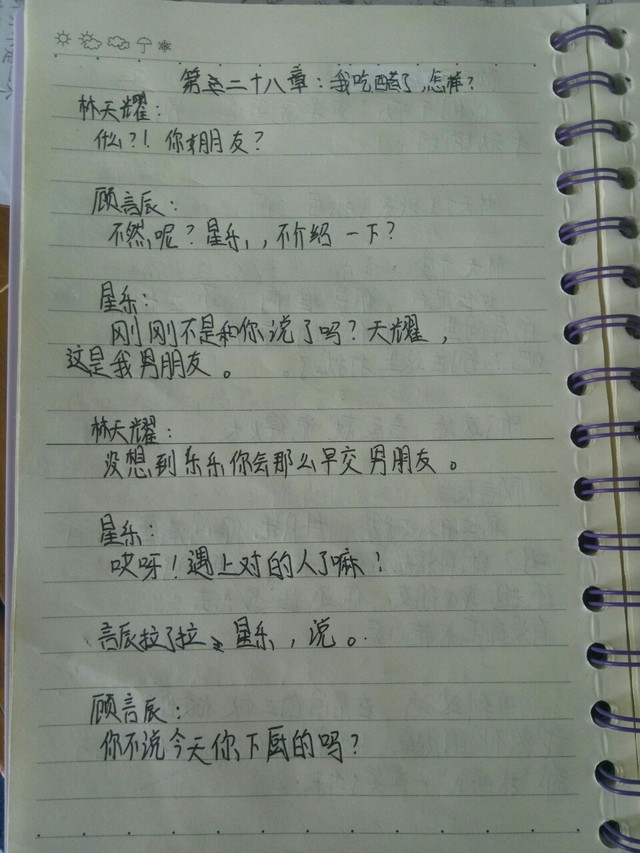 第二十八章：我吃醋了,怎样？
林天耀：
什么?！你男朋友？
顾言辰：
不然呢？星乐，不介绍一下？
星乐：
刚刚不是和你说了吗？天耀，
这是我男朋友。
林天耀：
没想到乐乐你会那么早交男朋友。
星乐：
哎呀！遇上对的人了嘛！
言辰拉了拉星乐，说。
顾言辰：
你不说今天你下厨的吗？